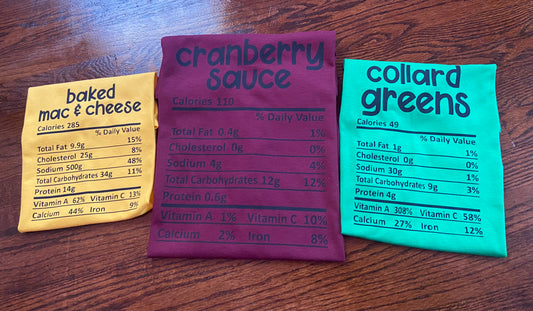 baked
mac & cheese
Calories 285
% Daily Value
Total Fat 9.9g 15%
Cholesterol 25g 8%
Sodium 500g 48%
Total Carbohydrates 34g 11%
Protein 14g
Vitamin A 62% Vitamin C 13%
Calcium 44% Iron 9%
cranberry
sauce
Calories 110
% Daily Value
Total Fat 0.4g 1%
Cholesterol 0g 0%
Sodium 4g 4%
Total Carbohydrates 12g 12%
Protein 0.6g
Vitamin A 1% Vitamin C 10%
Calcium 2% Iron 8%
collard
greens
Calories 49
% Daily Value
Total Fat 1g 1%
Cholesterol 0g 0%
Sodium 30g 1%
Total Carbohydrates 9g 3%
Protein 4g
Vitamin A 308% Vitamin C 58%
Calcium 27% Iron 12%